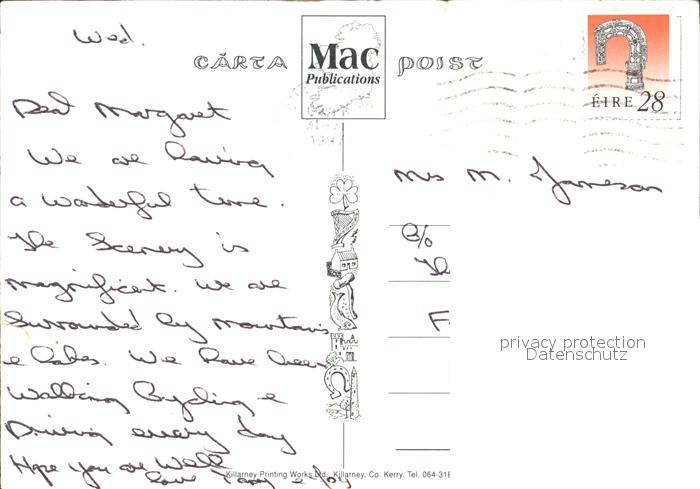 Wed.
CÁRTA Mac POIST
Publications
ÉIRE 28
Dear Margaret
We are having
a wonderful time.
The Scenery is
magnificent. We are
Surrounded by mountains
& lakes. We have been
Walking Cycling &
Driving every day
Hope you are Well
love
Mrs M. Jameson
C/o
The
F
privacy protection
Datenschutz
Killarney Printing Works Ltd., Killarney, Co. Kerry. Tel. 064-318